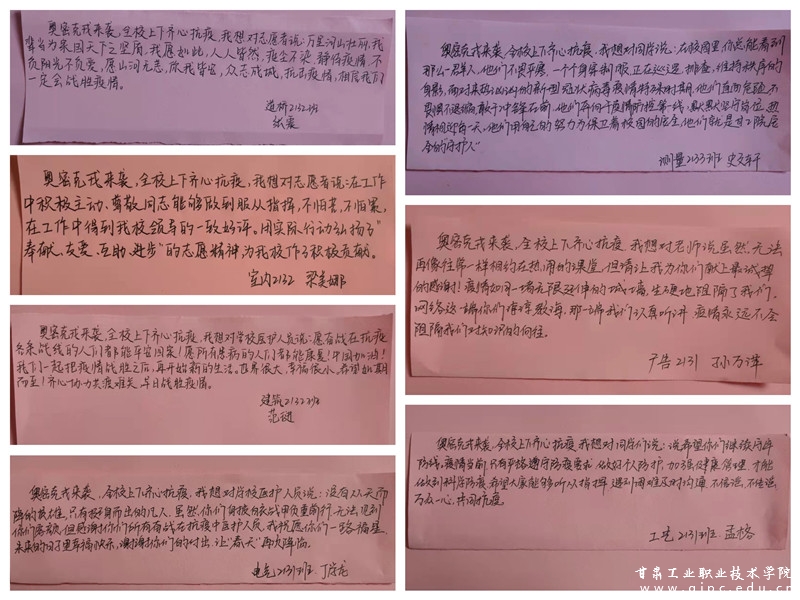 奥密克戎来袭,全校上下齐心抗疫,我想对志愿者说:万里河山壮丽,我
辈当为来国天下之坚盾,我愿如此,人人皆然,疫会不染,静待疫情,不
负阳光不负爱,愿山河无恙,欣我皆安,众志成城,抗击疫情,相信我们
一定会战胜疫情。
道桥2132班
张震
奥密克戎来袭,全校上下齐心抗疫,我想对志愿者说:在工作
中积极主动、尊敬同志能够做到服从指挥,不怕苦,不怕累,
在工作中得到我校领导的一致好评。用实际行动弘扬了“
奉献、友爱、互助、进步”的志愿精神,为我校作了积极贡献。
室内2132 梁美娜
奥密克戎来袭,全校上下齐心抗疫,我想对学校医护人员说:愿奋战在抗疫
各条战线的人们都能平安回家!愿所有患病的人们都能康复!中国加油!
我们一起把疫情战胜之后,再开始新的生活。世界很大,幸福很小。希望如期
而至!齐心协力共渡难关,早日战胜疫情。
建筑2132班
范
奥密克戎来袭,全校上下齐心抗疫,我想对学校医护人员说:没有从天而
降的英雄,只有挺身而出的凡人,虽然你们身披白衣战甲负重前行,无法见到
你们容颜,但感谢你们所有奋战在抗疫中医护人员,我祝愿你们一路福星,
未来的日子里幸福快乐,谢谢你们的付出,让“春天”再次降临。
电气2131班 丁学龙
奥密克戎来袭,全校上下齐心抗疫,我想对同学说:在校园里,你总能看到
那么一群人,他们不畏严寒,一个个身穿制服,正在巡逻,排查,维持秩序的
身影,面对来势汹汹的新型冠状病毒疫情特殊时期,他们直面危险不
畏惧不退缩,敢于冲锋在前,他们奔向于疫情防控第一线,默默坚守岗位,热
情相迎每一天。他们用自己的努力为保卫着校园的安全,他们就是真正院区
全的守护人”
测量2133班 史文轩
奥密克戎来袭,全校上下齐心抗疫,我想对老师说虽然,无法
再像往常一样相约在热闹的课堂,但请让我为你们献上最诚挚
的感谢!疫情如同一堵无限延伸的城墙,生硬地阻隔了我们,
网络这一端你们谆谆教诲,那一端我们认真听讲 疫情永远不会
阻隔我们对知识的向往。
广告2131 孙万萍
奥密克戎来袭,全校上下齐心抗疫,我想对同学们说:说希望你们继续守牢
防线。疫情当前,只有严格遵守防疫要求,做好个人防护,加强健康管理,才能
做到科学防疫,希望大家能够听从指挥,遇到困难及时沟通,不信谣,不传谣
万众一心,共同抗疫。
工艺2131班.孟榕
甘肃工业职业技术学院
www.gipc.edu.cn